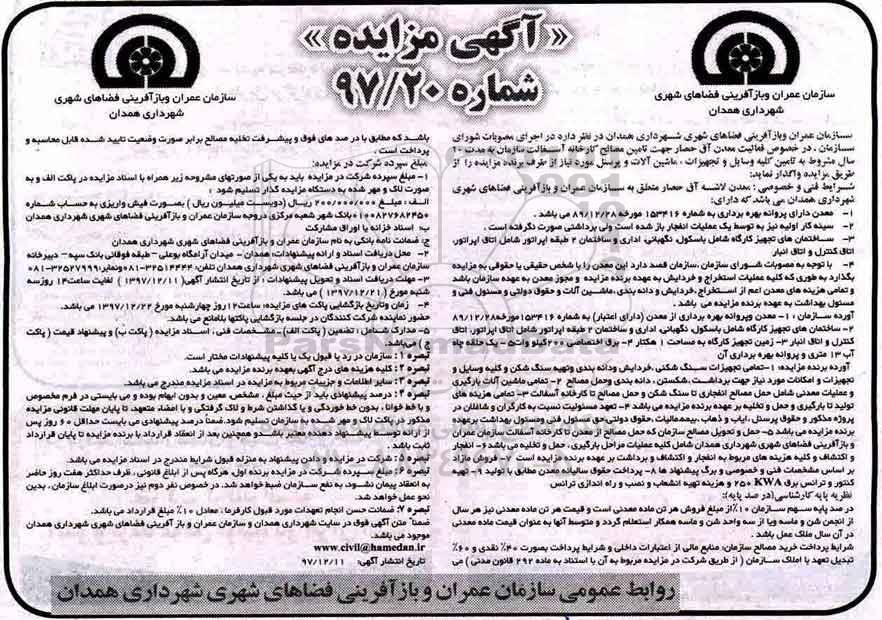 «آگهی مزایده»
شماره ۹۷/۲۰
سازمان عمران وبازآفرینی فضاهای شهری
شهرداری همدان
سازمان عمران وبازآفرینی فضاهای شهری
شهرداری همدان
سازمان عمران وبازآفرینی فضاهای شهری شهرداری همدان در نظر دارد در اجرای مصوبات شورای
سازمان ، در خصوص فعالیت معدن آق حصار جهت تامین مصالح کارخانه آسفالت سازمان به مدت ۱۰
سال مشروط به تامین کلیه وسایل و تجهیزات ، ماشین آلات و پرسنل مورد نیاز از طرف برنده مزایده را از
طریق مزایده واگذار نماید:
شرایط فنی و خصوصی : معدن لاشه آق حصار متعلق به سازمان عمران و بازآفرینی فضاهای شهری
شهرداری همدان می باشد که دارای:
۱- معدن دارای پروانه بهره برداری به شماره ۱۵۳۴۱۶ مورخه ۸۹/۱۲/۲۸ می باشد .
۲- سینه کار اولیه نیز به توسط یک عملیات انفجار باز شده است ولی برداشتی صورت نگرفته است .
۳- ساختمان های تجهیز کارگاه شامل باسکول، نگهبانی، اداری و ساختمان ۲ طبقه اپراتور شامل اتاق اپراتور،
اتاق کنترل و اتاق انبار
۴- با توجه به مصوبات شورای سازمان ،سازمان قصد دارد این معدن را با شخص حقیقی یا حقوقی به مزایده
بگذارد به طوری که کلیه عملیات استخراج و خردایش به عهده برنده مزایده و مجوز معدن به عهده سازمان باشد
و تمامی هزینه های معدن اعم از استخراج ،خردایش و دانه بندی ،ماشین آلات و حقوق دولتی و مسئول فنی و
مسئول بهداشت به عهده برنده مزایده می باشد .
آورده سازمان : ۱- معدن وپروانه بهره برداری از معدن (دارای اعتبار) به شماره ۱۵۳۴۱۶مورخه۸۹/۱۲/۲۸
۲- ساختمان های تجهیز کارگاه شامل باسکول، نگهبانی، اداری و ساختمان ۲ طبقه اپراتور شامل اتاق اپراتور، اتاق
کنترل و اتاق انبار ۳- زمین تجهیز کارگاه به مساحت ۱ هکتار ۴- برق اختصاصی ۲۰۰کیلو وات۵- یک حلقه چاه
آب ۱۳ متری و پروانه بهره برداری آن
آورده برنده مزایده: ۱-تمامی تجهیزات سنگ شکنی ،خردایش ودانه بندی وتهیه سنگ شکن و کلیه وسایل و
تجهیزات و امکانات مورد نیاز جهت برداشت ،شکستن ، دانه بندی وحمل مصالح ۲- تمامی ماشین آلات بارگیری
و عملیات معدنی شامل حمل مصالح انفجاری تا سنگ شکن و حمل مصالح تا کارخانه آسفالت ۳- تمامی هزینه های
تولید تا بارگیری و حمل و تخلیه بر عهده برنده مزایده می باشد ۴- تعهد مسئولیت نسبت به کارگران و شاغلان در
پروژه مذکور و حقوق پرسنل ،ایاب و ذهاب ،بیمه،مالیات ،حقوق دولتی،حق مسئول فنی ومسئول بهداشت برعهده
برنده مزایده می باشد ۵- حمل و تحویل مصالح سازمان که حمل مصالح از معدن تا کارخانه آسفالت سازمان عمران
و بازآفرینی فضاهای شهری شهرداری همدان شامل کلیه عملیات مراحل بارگیری ، حمل و تخلیه می باشد ۶- انفجار
و اکتشاف و کلیه هزینه های مربوط به انفجار و اکتشاف و برداشت بر عهده برنده مزایده است ۷- فروش مازاد
بر اساس مشخصات فنی و خصوصی و برگ پیشنهاد ها ۸- پرداخت حقوق سالیانه معدن مطابق با تولید ۹- تهیه
کنتور و ترانس برق KWA ۲۵۰ و هزینه تهیه انشعاب و نصب و راه اندازی ترانس
نظریه پایه کارشناسی(در صد پایه):
در صد پایه سهم سازمان ۱۰٪از مبلغ فروش هر تن ماده معدنی است و قیمت هر تن ماده معدنی نیز هر سال
از انجمن شن و ماسه ویا از سه واحد شن و ماسه همکار استعلام گردد و متوسط آنها به عنوان قیمت ماده معدنی
در آن سال ملاک عمل باشد .
شرایط پرداخت خرید مصالح سازمان: منابع مالی از اعتبارات داخلی و شرایط پرداخت بصورت ۴۰٪ نقدی و ۶۰٪
تبدیل تعهد با املاک سازمان ( از طریق شرکت در مزایده مربوط به آن با استناد به ماده ۲۹۲ قانون مدنی ) می
باشد که مطابق با در صد های فوق و پیشرفت تخلیه مصالح برابر صورت وضعیت تایید شده قابل محاسبه و
پرداخت است .
مبلغ سپرده شرکت در مزایده:
۱- مبلغ سپرده شرکت در مزایده باید به یکی از صورتهای مشروحه زیر همراه با اسناد مزایده در پاکت الف و به
صورت لاک و مهر شده به دستگاه مزایده گذار تسلیم شود :
الف : مبلغ ۲۰۰/۰۰۰/۰۰۰ ریال (دویست میلیون ریال ) بصورت فیش واریزی به حساب شماره
۱۰۰۸۲۷۶۸۲۴۵۰ بانک شهر شعبه مرکزی دروجه سازمان عمران و بازآفرینی فضاهای شهری شهرداری همدان
ب: اسناد خزانه یا اوراق مشارکت
ج: ضمانت نامه بانکی به نام سازمان عمران و بازآفرینی فضاهای شهری شهرداری همدان
۲- محل دریافت اسناد و ارائه پیشنهادات: همدان - میدان آرامگاه بوعلی - طبقه فوقانی بانک سپه - دبیرخانه
سازمان عمران و بازآفرینی فضاهای شهری شهرداری همدان تلفن: ۳۲۵۱۴۴۴۴-۰۸۱ ونمابر:۳۲۵۲۷۹۹۹-۰۸۱
۳- مهلت دریافت: اسناد و تحویل پیشنهادات ، از تاریخ انتشار آگهی( ۱۳۹۷/۱۲/۱۱ ) لغایت ساعت۱۴ روزسه
شنبه مورخ ( ۱۳۹۷/۱۲/۲۱ ) می باشد .
۴- زمان وتاریخ بازگشایی پاکت های مزایده: ساعت۱۲ روز چهارشنبه مورخ ۱۳۹۷/۱۲/۲۲ می باشد .
حضور نماینده شرکت کنندگان در جلسه بازگشایی پاکتها بلامانع می باشد.
۵- مدارک شامل : تضمین ( پاکت الف)ـ مشخصات فنی ، اسناد مزایده ( پاکت ب) و پیشنهاد قیمت ( پاکت
ج )می باشد.
تبصره ۱ : سازمان در رد یا قبول یک یا کلیه پیشنهادات مختار است.
تبصره ۲ : کلیه هزینه های درج آگهی بعهده برنده مزایده می باشد.
تبصره ۳ : سایر اطلاعات و جزییات مربوط به مزایده در اسناد مزایده مندرج می باشد.
تبصره ۴ : درصد پیشنهادی باید از حیث مبلغ ، مشخص، معین و بدون ابهام بوده و می بایستی در فرم مخصوص
و با خط خوانا ، بدون خط خوردگی و یا گذاشتن شرط و لاک گرفتگی و با امضاء متعهد، تا پایان مهلت قانونی مزایده
مذکور در پاکت لاک و مهر شده به سازمان تسلیم شود.ضمناً درصد پیشنهادی می بایست حداقل ۶۰ روز پس
از ارائه توسط پیشنهاد دهنده معتبر باشدو همچنین بعد از انعقاد قرارداد با برنده مزایده تا پایان قرارداد
ثابت باشد .
تبصره ۵ : شرکت در مزایده و دادن پیشنهاد به منزله قبول شرایط مندرج در اسناد مزایده می باشد.
تبصره ۶ : سپرده شرکت در مزایده برنده اول، هرگاه پس از ابلاغ قانونی ، ظرف حداکثر هفت روز حاضر
به انعقاد پیمان نشود، به نفع سازمان ضبط خواهد شد. در خصوص نفر دوم نیز درصورت ابلاغ سازمان ، بدین
نحو عمل خواهد شد.
تبصره ۷: ضمانت حسن انجام تعهدات مورد قبول کارفرما، معادل ۱۰٪ مبلغ قرارداد می باشد.
ضمناً متن آگهی فوق در سایت شهرداری همدان و سازمان عمران و باز آفرینی فضاهای شهری شهرداری همدان
موجود می باشد.
www.civil@hamedan.ir
تاریخ انتشار آگهی: ۹۷/۱۲/۱۱
روابط عمومی سازمان عمران و بازآفرینی فضاهای شهری شهرداری همدان
ParsNamadData